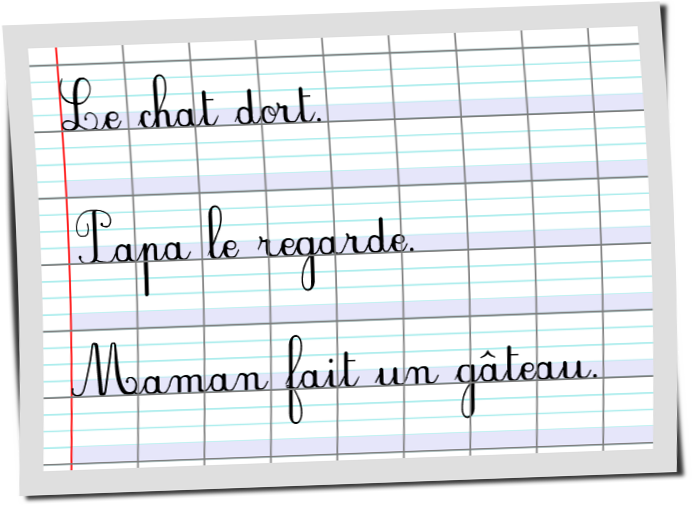 Le chat dort.
Papa le regarde.
Maman fait un gâteau.